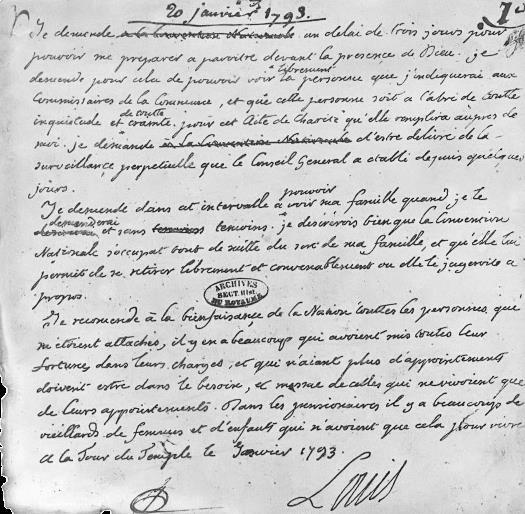 20 janvier 1793.
Je demande a la Convention Nationale un delai de trois jours pour
pouvoir me preparer a paroitre devant la presence de Dieu. je
demande pour cela de pouvoir voir librement la personne que j'indiquerai aux
Commissaires de la Commune, et que cette personne soit a l'abri de toutte
inquietude et de toutte crainte pour cet Acte de Charité qu'elle remplira aupres de
moi. je demande a la Convention Nationale d'estre delivré de la
surveillance perpetuelle que le Conseil General a etabli depuis quelques
jours.
Je demande dans cet intervalle a pouvoir voir ma famille quand je le
demanderai et sans temoins. je desirerois bien que la Convention
Nationale s'occupat tout de suitte du sort de ma famille, et qu'elle lui
permit de se retirer librement et convenablement ou elle le jugeroit a
propos.
ARCHIVES
SECT. HIST.
DU ROYAUME
Je recomende à la bienfaisance de la Nation touttes les personnes qui
m'etoient attachés, il y en a beaucoup qui avoient mis toutes leur
fortune, dans leurs charges, et qui n'aiant plus d'appointements
doivent estre dans le besoin, et mesme de celles qui ne vivoient que
de leurs appointements. Dans les pensionaires il y a beaucoup de
vieillards de femmes et d'enfants qui n'avoient que cela pour vivre
A la Tour du Temple le Janvier 1793.
Louis